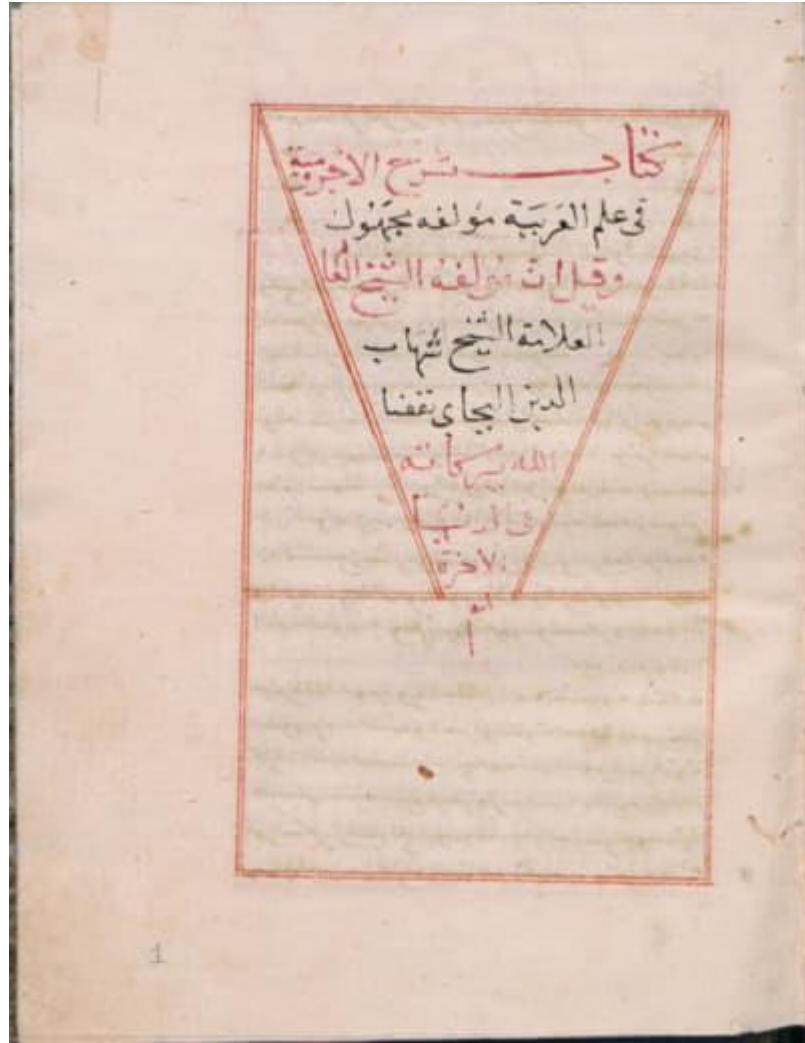 كتاب شرح الاجرومية
فى علم العربية مولفه مجهول
وقيل ان مولفه الشيخ العا
العلامة الشيخ شهاب
الدين البجاى نفعنا
الله ببركاته
فى الدنيا
الاخرة
1